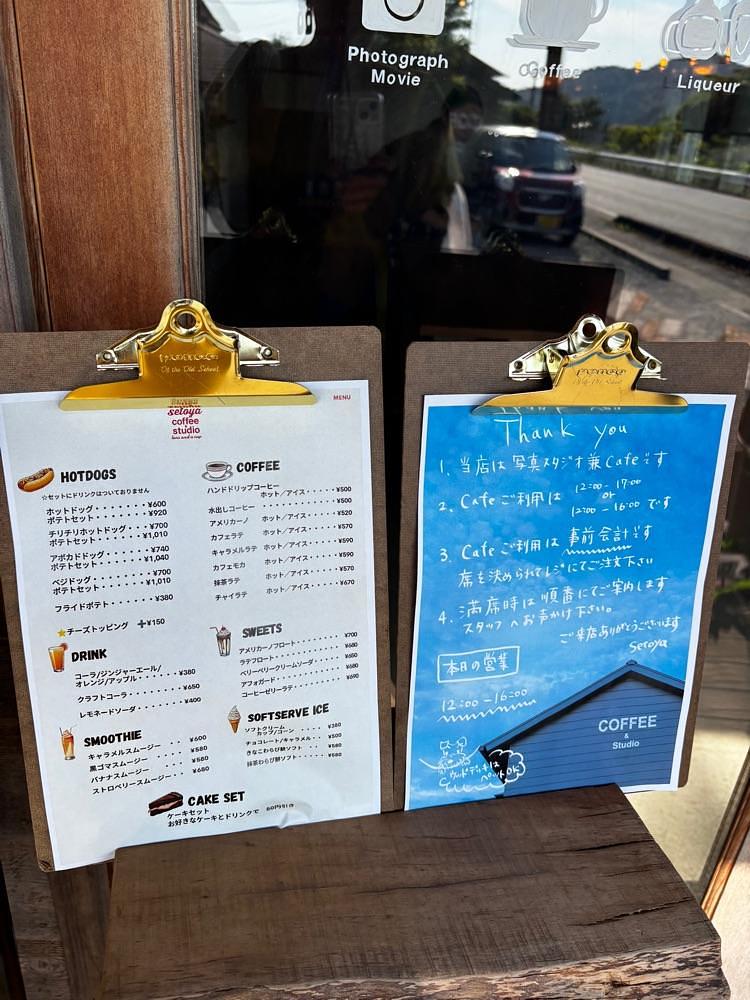 Photograph
Movie
Coffee
Liqueur
setoya
coffee
studio
MENU
HOTDOGS
☆セットにドリンクはついておりません
ホットドッグ・・・・・・¥600
ポテトセット・・・・・・¥920
チリチリホットドッグ・・・・¥700
ポテトセット・・・・・・¥1,010
アボカドドッグ・・・・・¥740
ポテトセット・・・・・・¥1,040
ベジドッグ・・・・・・・¥700
ポテトセット・・・・・・¥1,010
フライドポテト・・・・・¥380
チーズトッピング +¥150
DRINK
コーラ/ジンジャーエール/
オレンジ/アップル・・・・・¥380
クラフトコーラ・・・・・・¥650
レモネードソーダ・・・・・¥400
SMOOTHIE
キャラメルスムージー・・¥600
黒ゴマスムージー・・・¥580
バナナスムージー・・・¥560
ストロベリースムージー・・¥680
COFFEE
ハンドドリップコーヒー
ホット/アイス・・・・・¥500
水出しコーヒー・・・・・・・・・¥500
アメリカーノ ホット/アイス・・・・¥520
カフェラテ ホット/アイス・・・・¥570
キャラメルラテ ホット/アイス・・・・¥590
カフェモカ ホット/アイス・・・・¥590
抹茶ラテ ホット/アイス・・・・¥570
チャイラテ ホット/アイス・・・・¥670
SWEETS
アメリカーノフロート・・・・・¥700
ラテフロート・・・・・・・¥650
ベリーベリークリームソーダ・・・¥680
アフォガード・・・・・・・¥660
コーヒーゼリーラテ・・・・・¥690
SOFTSERVE ICE
ソフトクリーム
カップ/コーン・・・¥380
チョコレート/キャラメル・・¥500
きなこわらび餅ソフト・・¥580
抹茶わらび餅ソフト・・¥580
CAKE SET
ケーキセット
お好きなケーキとドリンクで 80円引き
Thank you
1. 当店は写真スタジオ兼Cafeです
2. Cafeご利用は 12:00-17:00
or
12:00-16:00 です
3. Cafeご利用は 事前会計です
席を決められてレジにてご注文下さい
4. 満席時は順番にてご案内します
スタッフへお声かけ下さい。
ご来店ありがとうございます
Setoya
本日の営業
12:00-16:00
ウッドデッキは
ペットOK
COFFEE
&
Studio